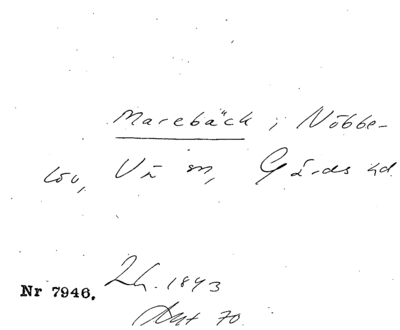 Marebäck i Nöbbe-
löv, Vä sn, Gärds hd
Nr 7946. Lh. 1843
Akt 70